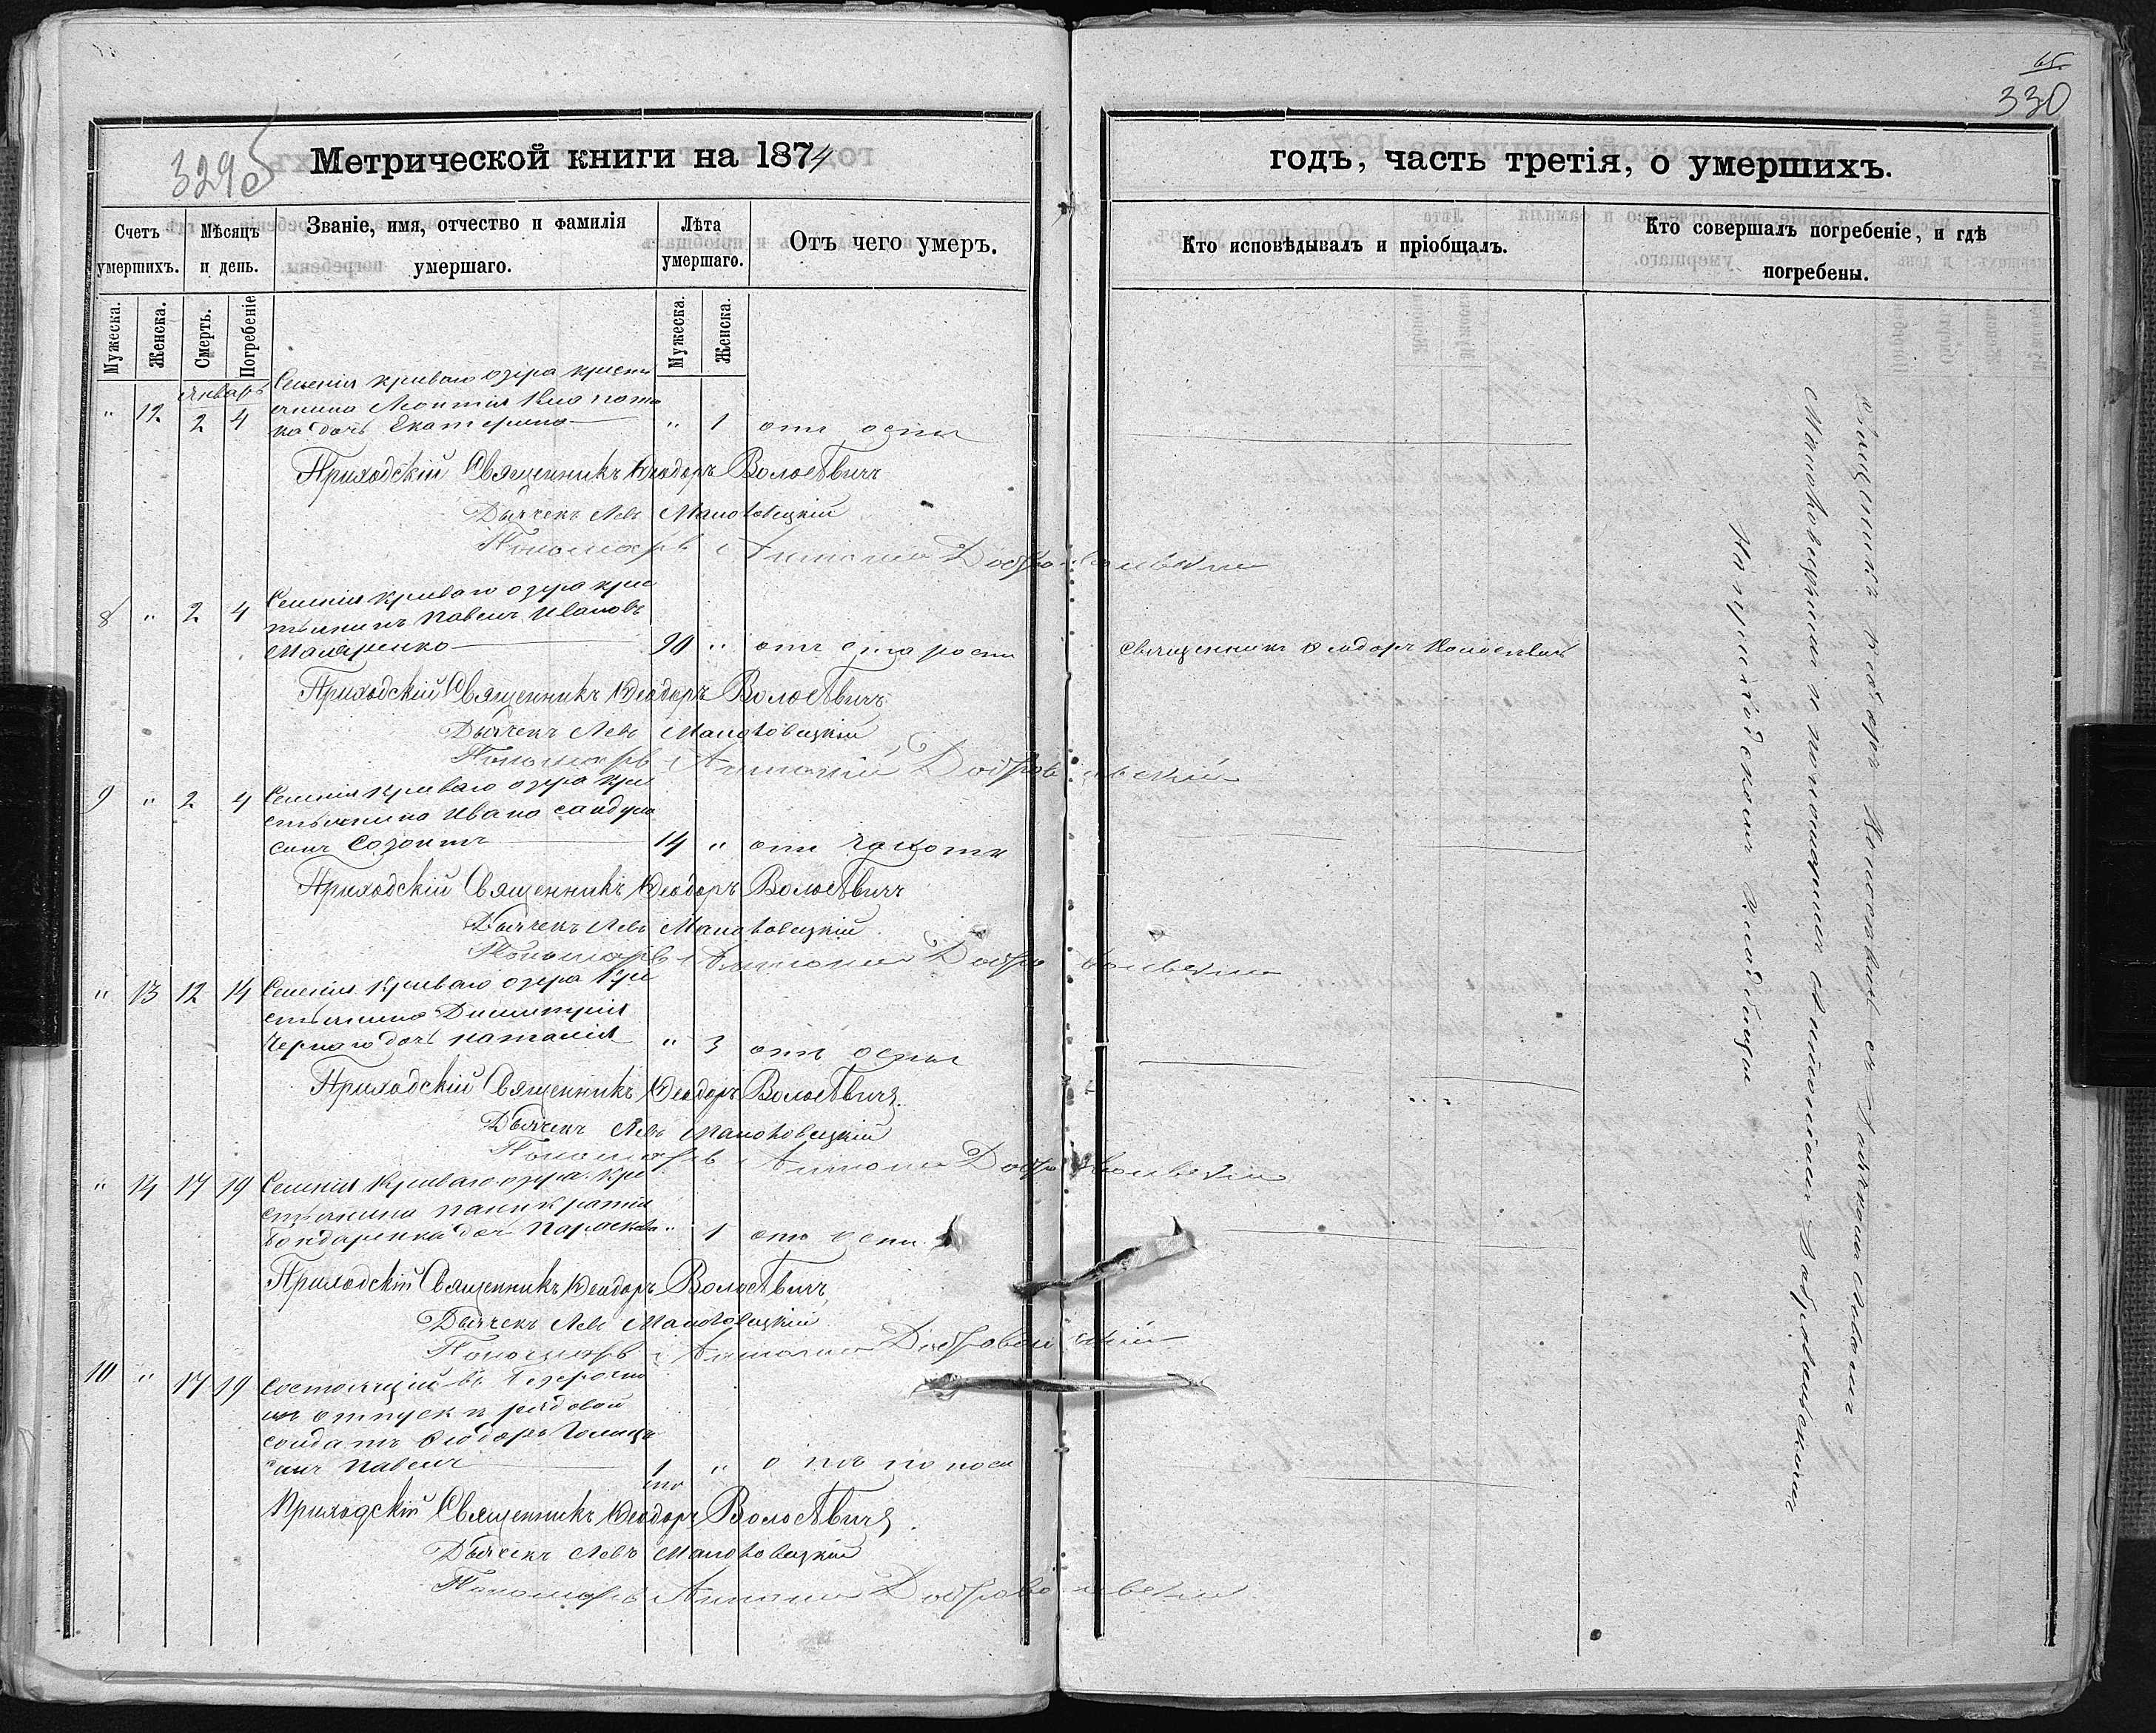 329об
Метрической книги на 1874
Счетъ умершихъ.
Мѣсяцъ и день.
Званіе, имя, отчество и фамилія умершаго.
Лѣта умершаго.
Отъ чего умеръ.
Мужеска.
Женска.
Смерть.
Погребеніе
Мужеска.
Женска.
январь
Селенія криваго озера крестя
" 12 2 4
янина Леонтія
дочь Екатерина " 1 отъ оспы
Приходскій Священникъ Ѳеодоръ
Дьячекъ Левъ Малоковецкій
Пономарь Антоній Добровольскій
Селенія криваго озера кре
8 " 2 4
стьянинъ Павелъ Ивановъ
Маляренко 90 " отъ старости
Приходскій Священникъ Ѳеодоръ
Дьячекъ Левъ Малоковецкій
Пономарь Антоній Добровольскій
9 " 2 4 Селенія криваго озера кре
стьянина Ивана
сынъ Созонтъ 14 " отъ чахотки
Приходскій Священникъ Ѳеодоръ
Дьячекъ Левъ Малоковецкій
Пономарь Антоній Добровольскій
" 13 12 14 Селенія криваго озера кре
стьянина Димитрія
Чернаго дочь Наталія " 3 отъ оспы
Приходскій Священникъ Ѳеодоръ
Дьячекъ Левъ Малоковецкій
Пономарь Антоній Добровольскій
" 14 17 19 Селенія криваго озера кре
стьянина Панкратія
Бондаренка дочь Параскева " 1 отъ оспы
Приходскій Священникъ Ѳеодоръ
Дьячекъ Левъ Малоковецкій
Пономарь Антоній Добровольскій
10 " 17 19 Состоящій въ безсроч
отпуску рядовой
солдатъ Ѳеодоръ
сынъ Павелъ 1 " отъ поноса
Приходскій Священникъ Ѳеодоръ
Дьячекъ Левъ Малоковецкій
Пономарь Антоній Добровольскій
65
330
годъ, часть третія, о умершихъ.
Кто исповѣдывалъ и пріобщалъ.
Кто совершалъ погребеніе, и гдѣ погребены.
Священникъ Ѳеодоръ
Священникъ Ѳеодоръ съ Дьячкомъ Львомъ
Малоковецкимъ и пономаремъ Антоніемъ Добровольскимъ
На приходскомъ кладбищѣ